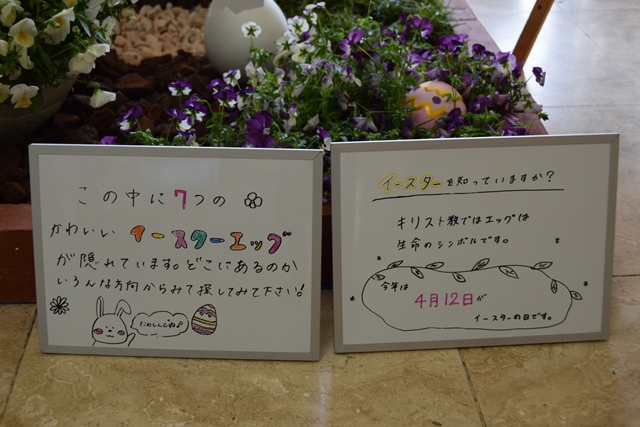 この中に7つの
かわいい イースターエッグ
が隠れています。どこにあるのか
いろんな方向からみて探してみて下さい!
たのしんでね♪
イースターを知っていますか?
キリスト教ではエッグは
生命のシンボルです。
今年は
4月12日が
イースターの日です。